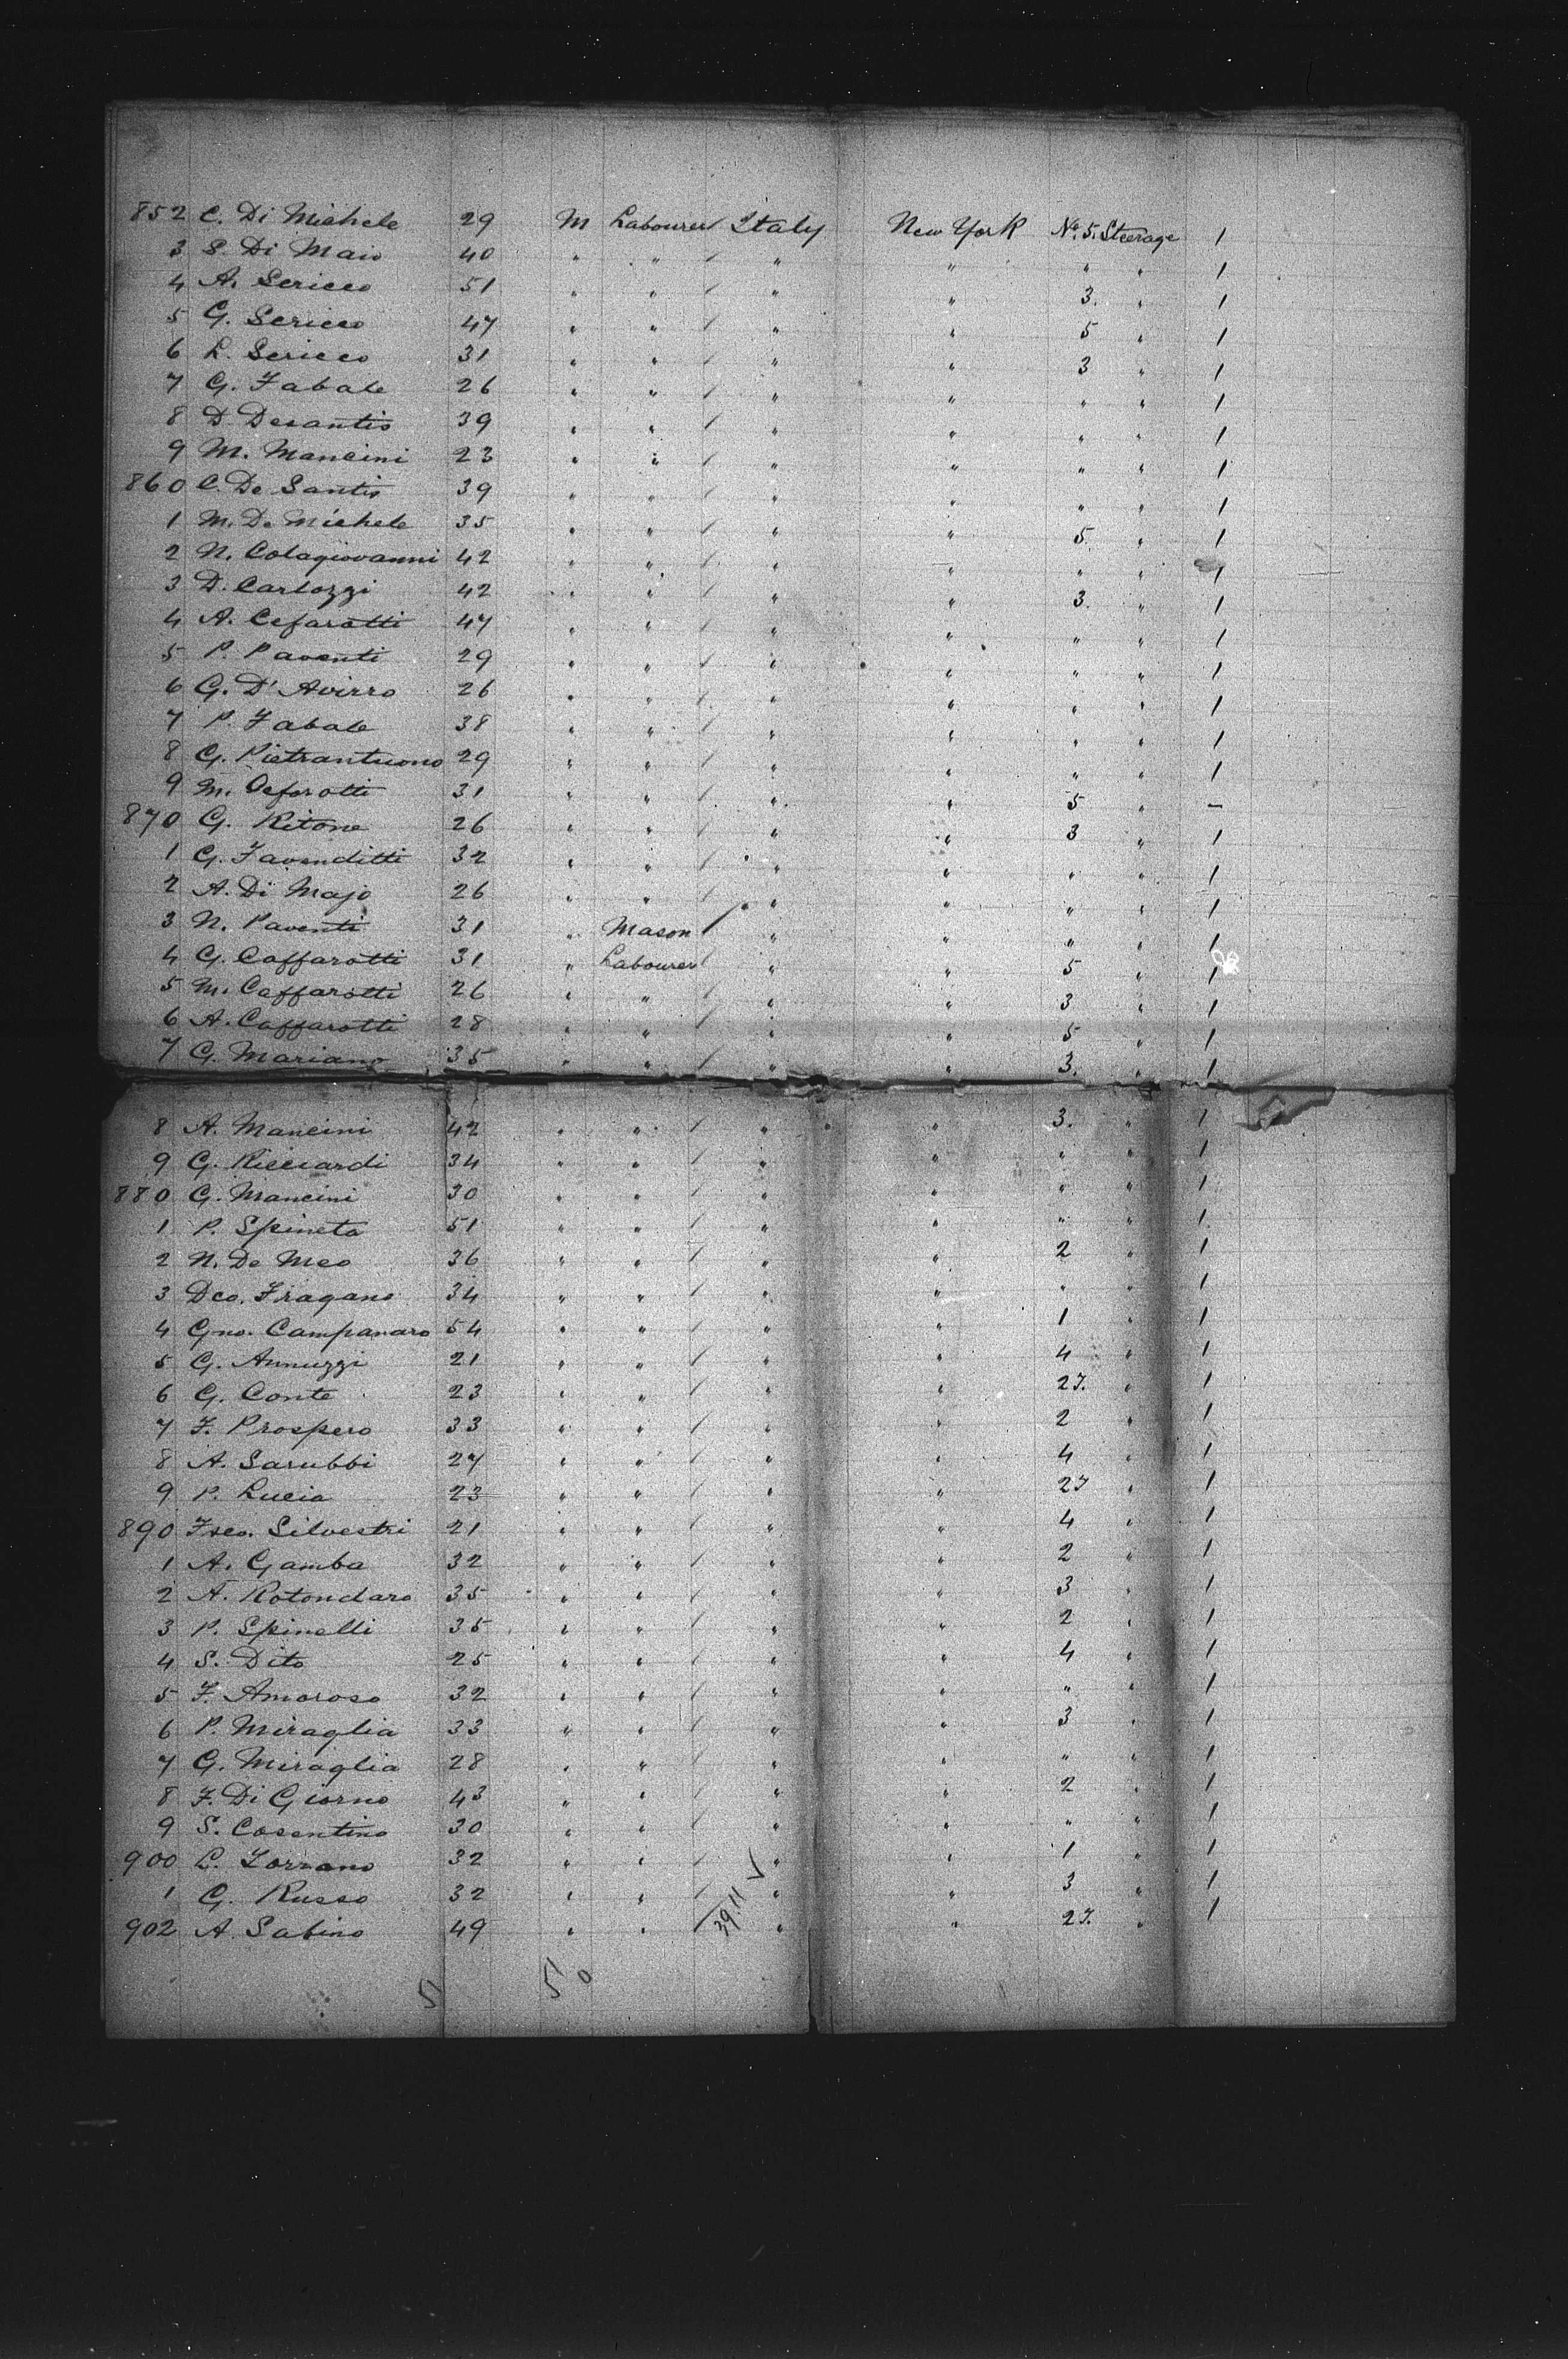 852 C. Di Michele 29 M Labourer / Italy New York No. 5. Steerage 1
3 S. Di Maio 40 " " / " " " " 1
4 A. Sericco 51 " " / " " 3. " 1
5 G. Sericco 47 " " / " " 5 " 1
6 L. Sericco 31 " " / " " 3 " 1
7 G. Zabale 26 " " / " " " " 1
8 D. Desantis 39 " " / " " " " 1
9 M. Mancini 23 " " / " " " " 1
860 C. De Santis 39 " " / " " " " 1
1 M. De Michele 35 " " / " " 5. " 1
2 N. Colagiovanni 42 " " / " " " " 1
3 D. Carlozzi 42 " " / " " 3. " 1
4 A. Cefarotti 47 " " / " " " " 1
5 P. Paventi 29 " " / " " " " 1
6 G. D'Avirro 26 " " / " " " " 1
7 P. Zabale 38 " " / " " " " 1
8 G. Pietrantuono 29 " " / " " " " 1
9 M. Ceforotti 31 " " / " " 5 " –
870 G. Ritone 26 " " / " " 3 " 1
1 G. Favenditti 32 " " / " " " " 1
2 A. Di Majo 26 " " / " " " " 1
3 N. Paventi 31 " Mason / " " " " 1
4 G. Caffarotti 31 " Labourer / " " 5 " 1
5 M. Caffarotti 26 " " / " " 3 " 1
6 A. Caffarotti 28 " " / " " 5 " 1
7 G. Mariano 35 " " / " " 3. " 1
8 A. Mancini 42 " " / " " 3. " 1
9 G. Ricciardi 34 " " / " " " " 1
880 G. Mancini 30 " " / " " " " 1
1 P. Spineta 51 " " / " " " " 1
2 N. De Meo 36 " " / " " 2 " 1
3 Dco. Fragano 34 " " / " " " " 1
4 Gno. Campanaro 54 " " / " " 1 " 1
5 G. Annuzzi 21 " " / " " 4 " 1
6 G. Conte 23 " " / " " 27. " 1
7 F. Prospero 33 " " / " " 2 " 1
8 A. Sarubbi 27 " " / " " 4 " 1
9 P. Lucia 23 " " / " " 27 " 1
890 Fsco. Silvestri 21 " " / " " 4 " 1
1 A. Gamba 32 " " / " " 2 " 1
2 A. Rotondaro 35 " " / " " 3 " 1
3 P. Spinelli 35 " " / " " 2 " 1
4 S. Dito 25 " " / " " 4 " 1
5 F. Amoroso 32 " " / " " " " 1
6 P. Miraglia 33 " " / " " 3 " 1
7 G. Miraglia 28 " " / " " " " 1
8 F. Di Giorno 43 " " / " " 2 " 1
9 S. Cosentino 30 " " / " " " " 1
900 L. Zorzano 32 " " / " " 1 " 1
1 G. Russo 32 " " / " " 3 " 1
902 A. Sabino 49 " " / 39.11 " " 27. " 1
51 51 0